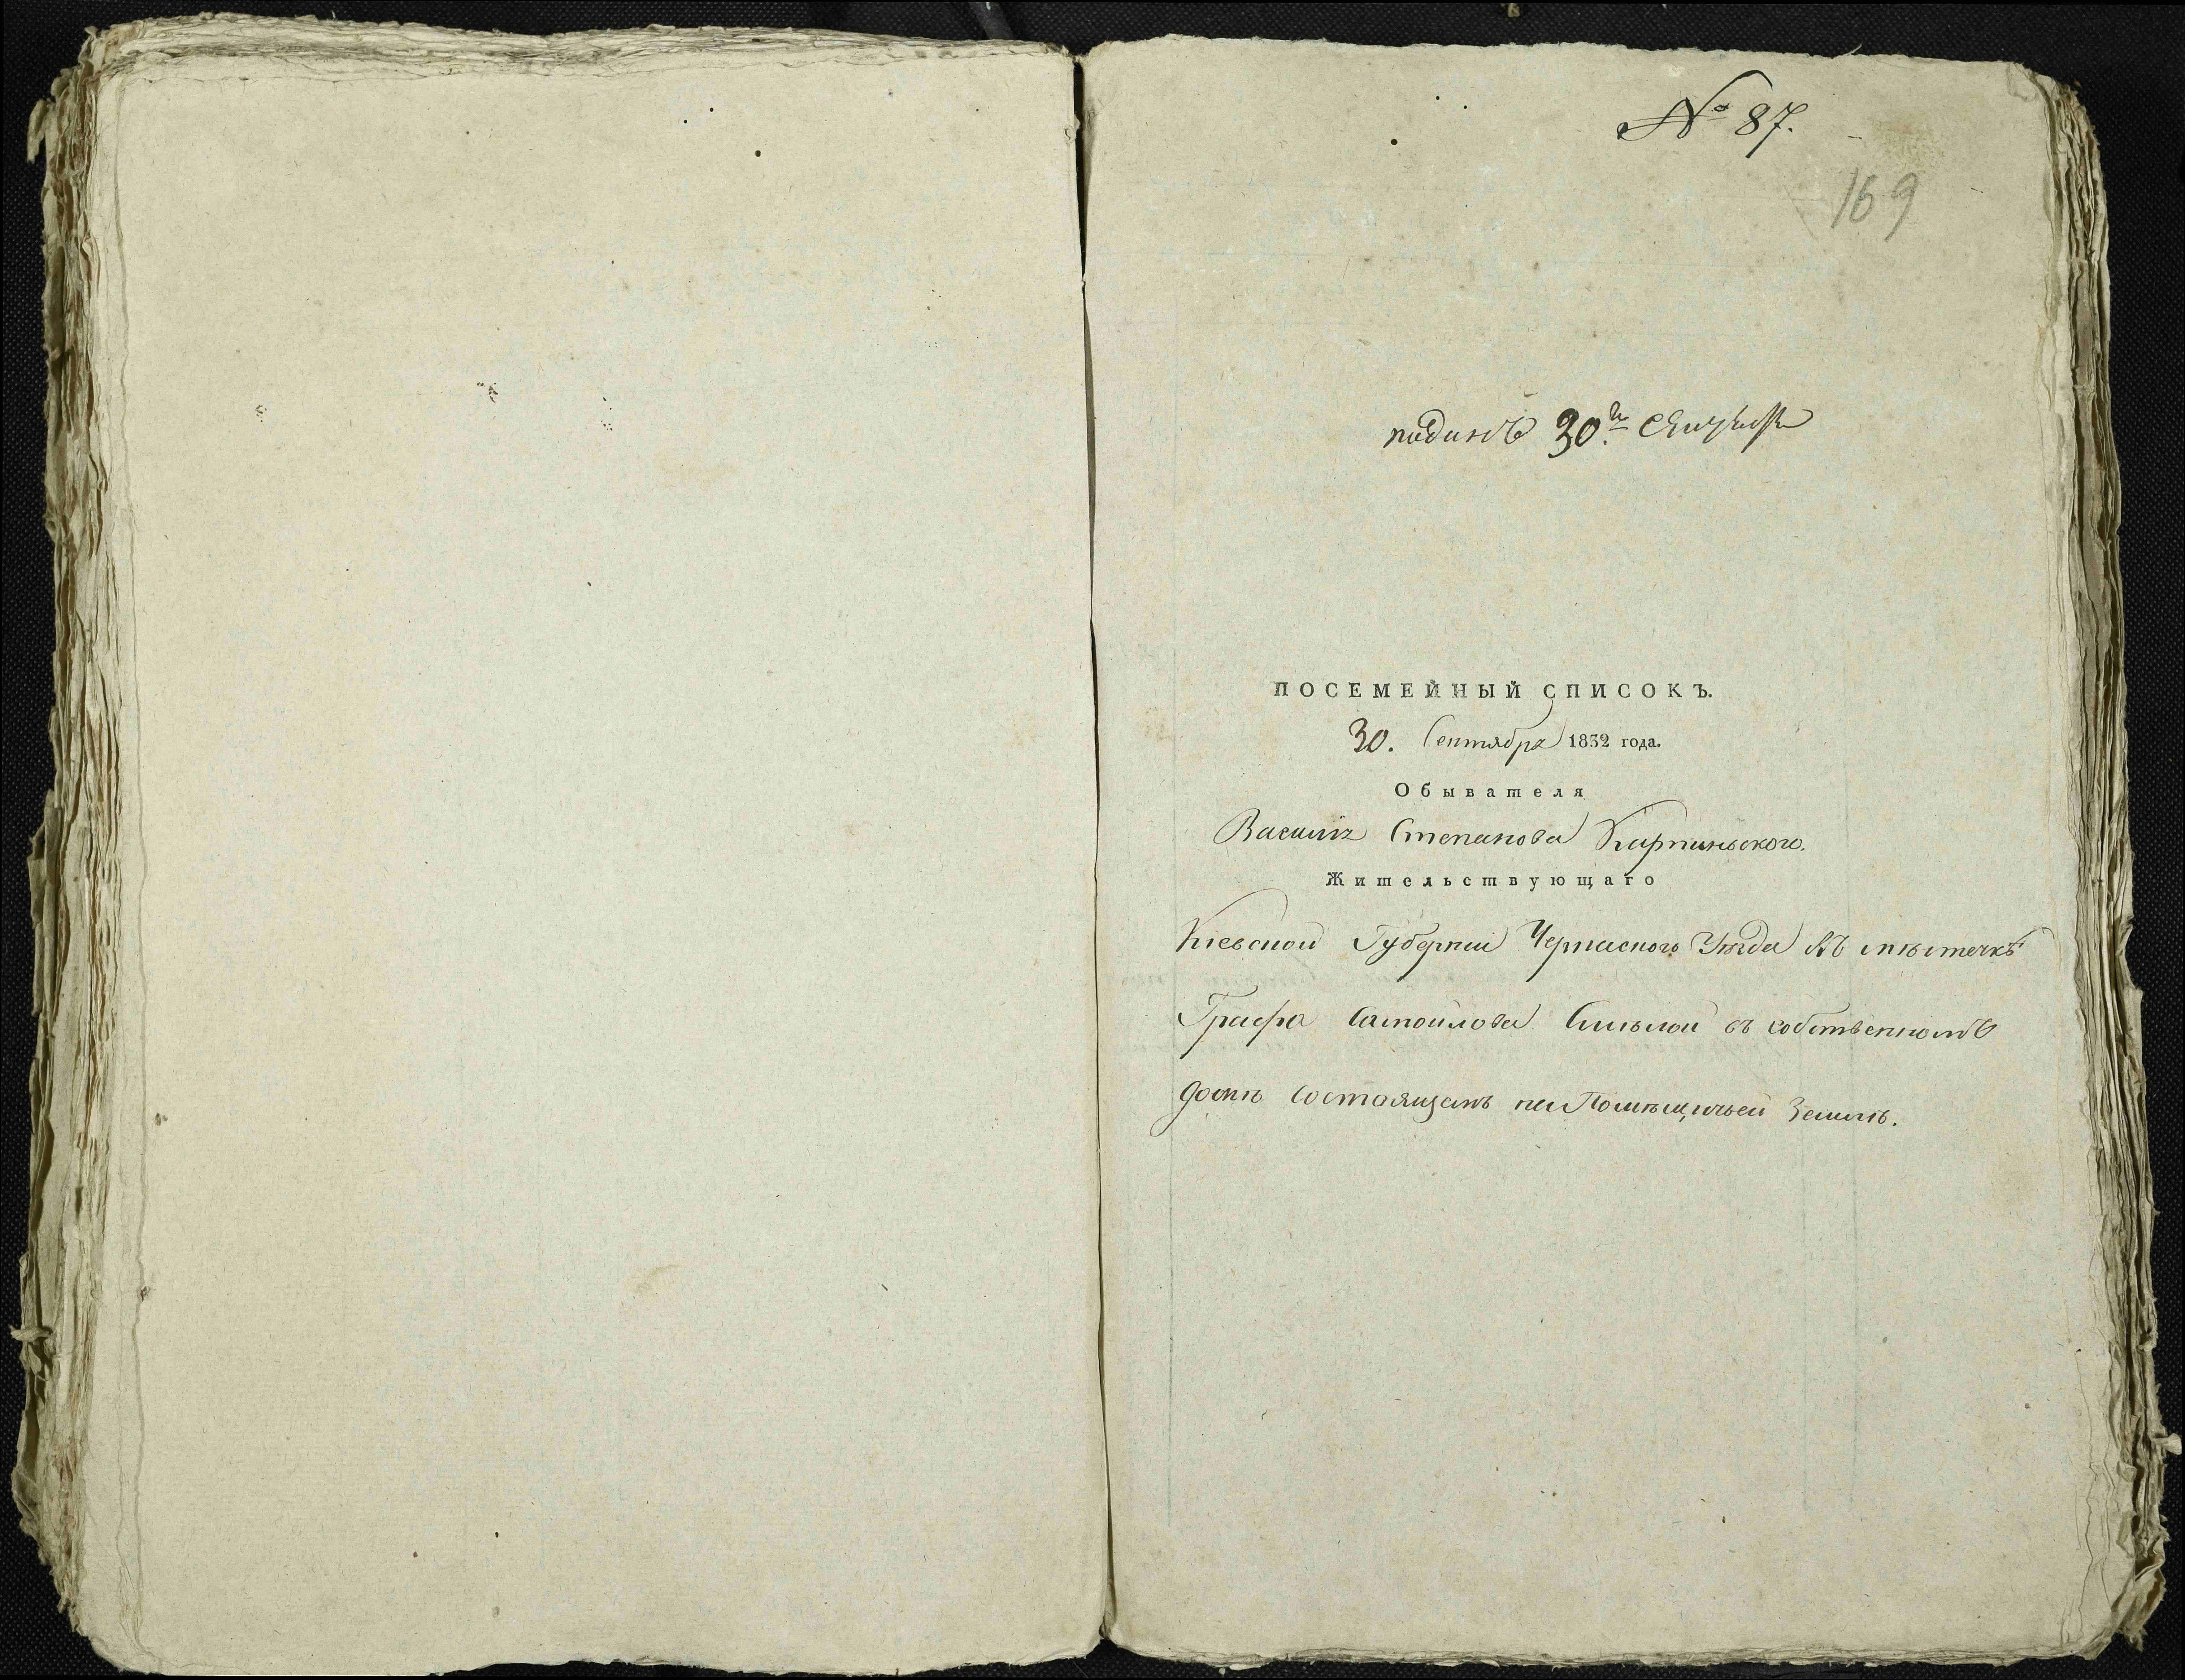 № 87.
169
поданъ 30го Сентября
ПОСЕМЕЙНЫЙ СПИСОКЪ.
30. Сентября 1832 года.
Обывателя
Василія Степанова Карпиньского.
Жительствующаго
Кіевской Губерніи Черкаского Уѣзда въ мѣстечкѣ
Графа Самойлова Смѣлой въ собственномъ
домѣ состоящемъ на Помѣщичьей Землѣ.